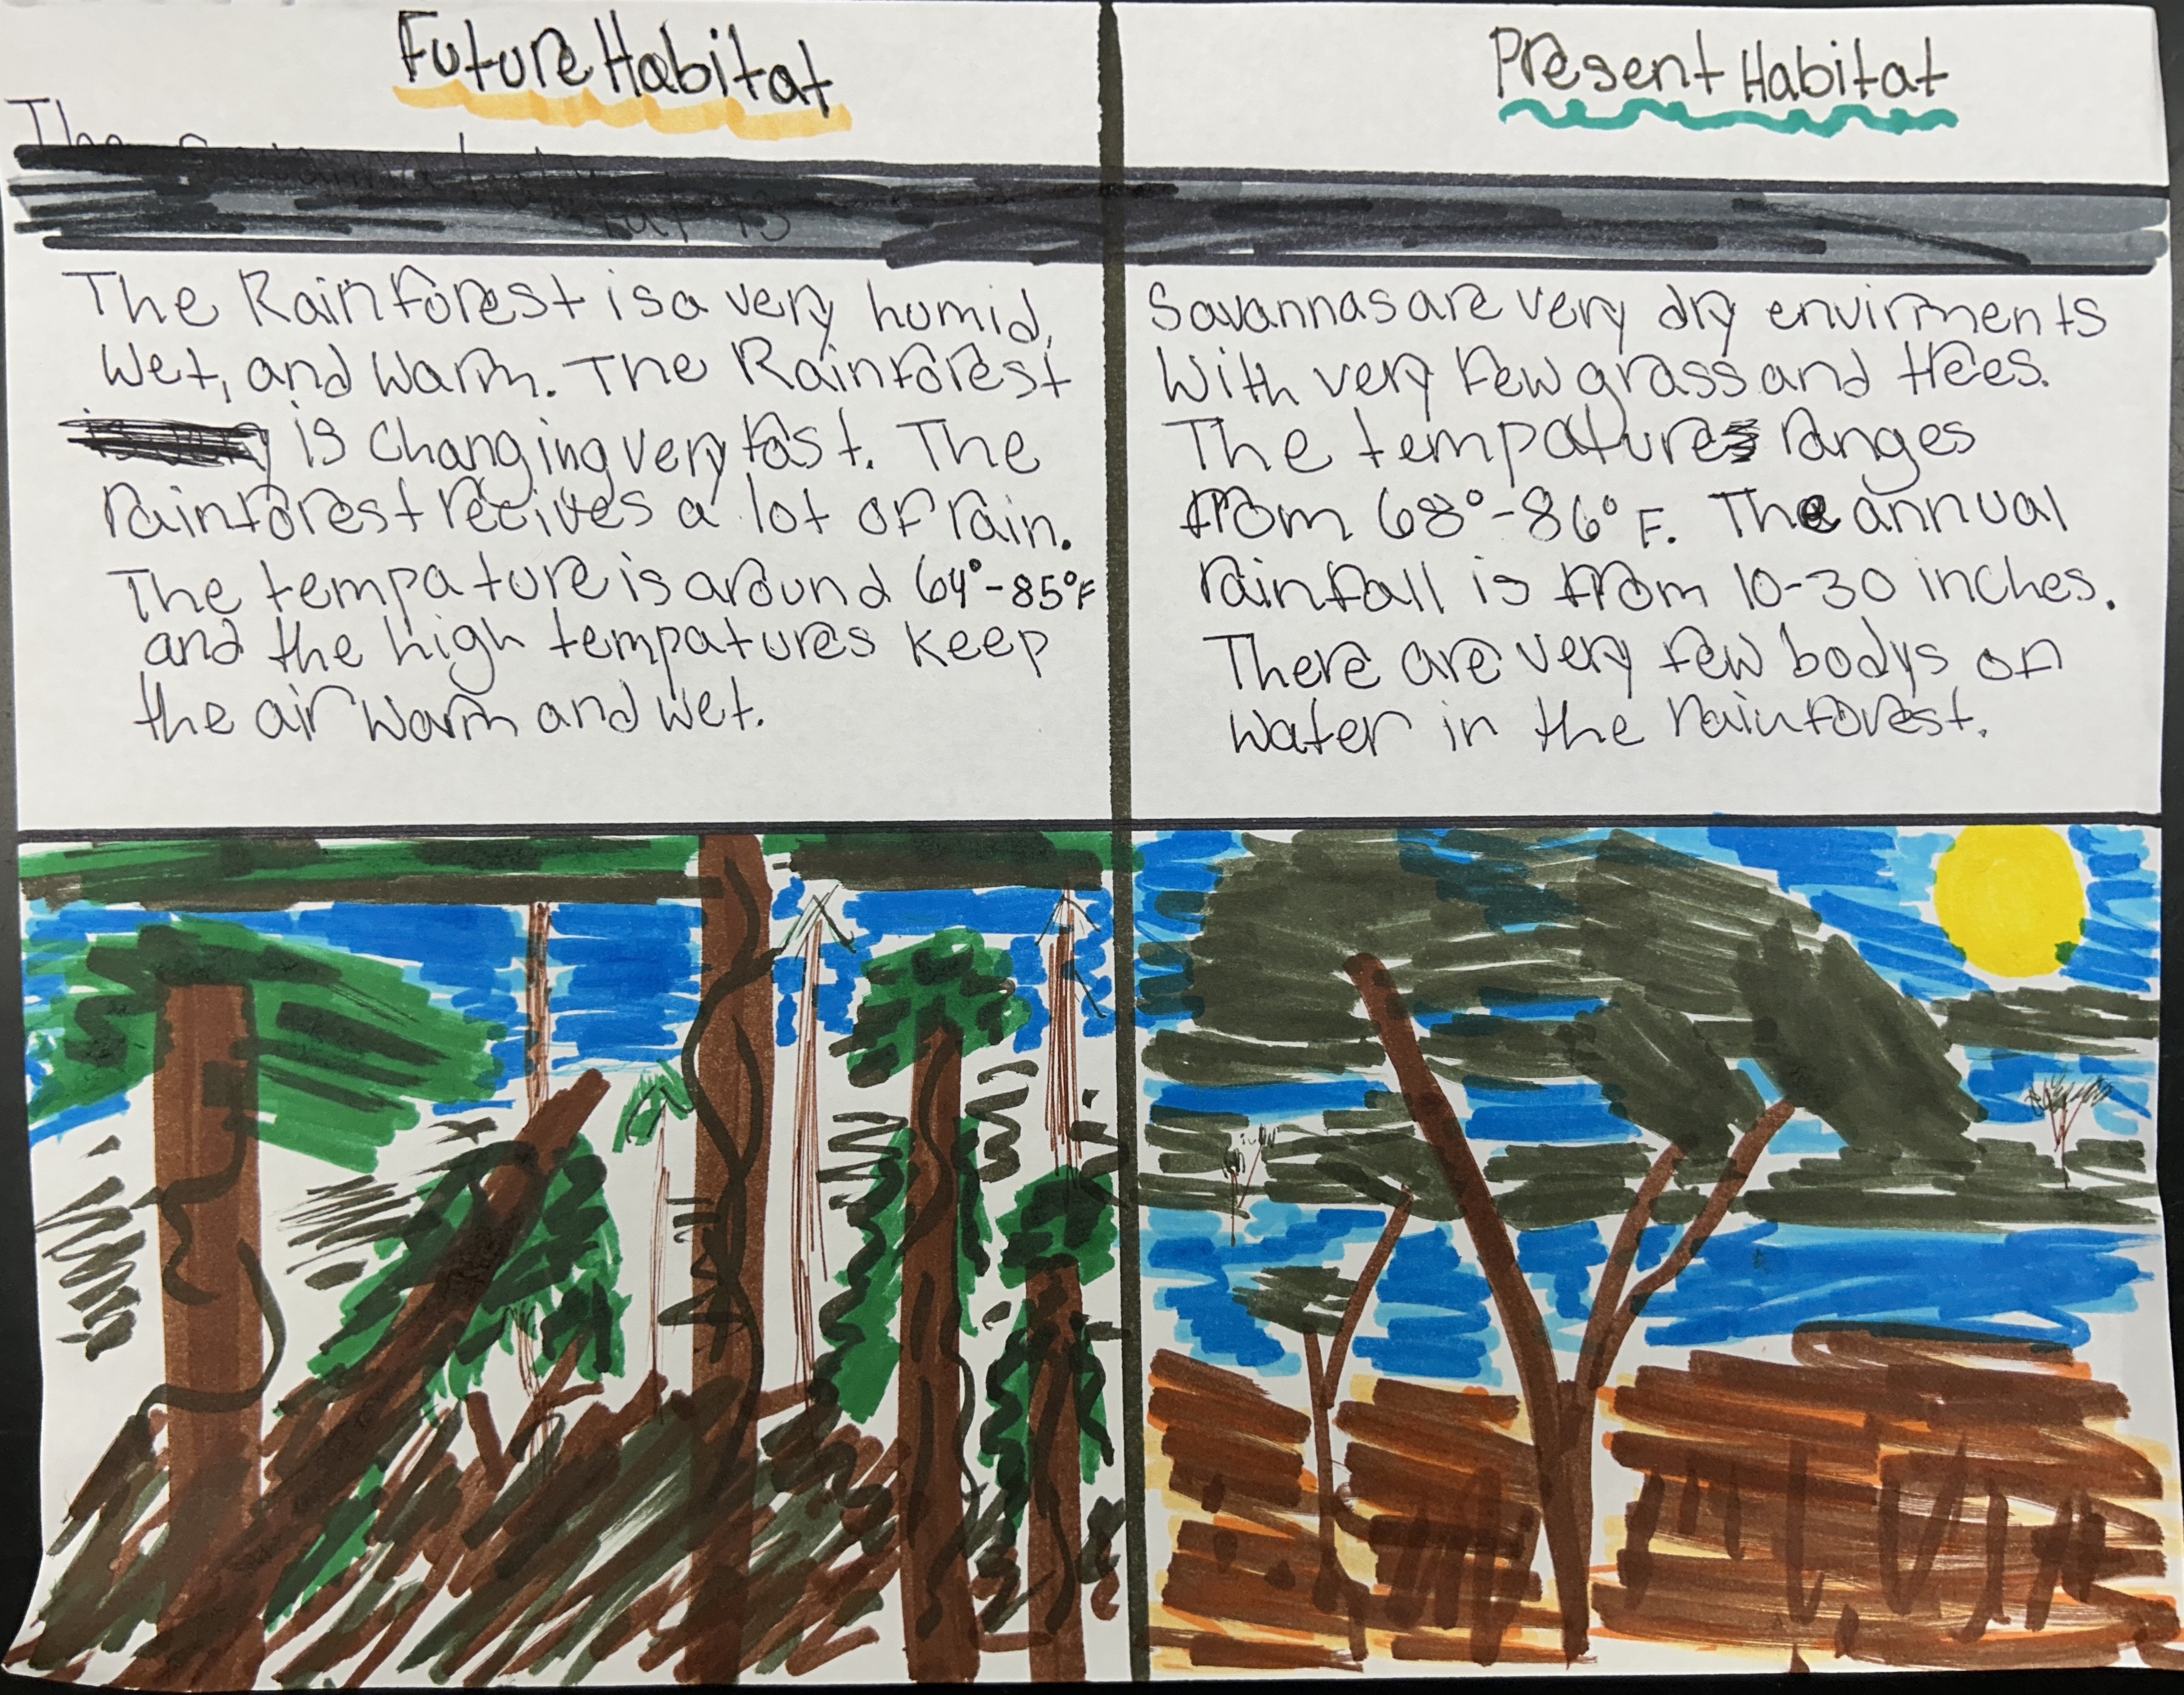 Future Habitat
The
The Rainforest is a very humid,
wet, and warm. The Rainforest
is changing very fast. The
rainforest recives a lot of rain.
The tempature is around 64°-85°F
and the high tempatures keep
the air warm and wet.
Present Habitat
Savannas are very dry envirments
With very few grass and trees.
The tempature ranges
from 68°-86° F. The annual
rainfall is from 10-30 inches.
There are very few bodys of
water in the rainforest.